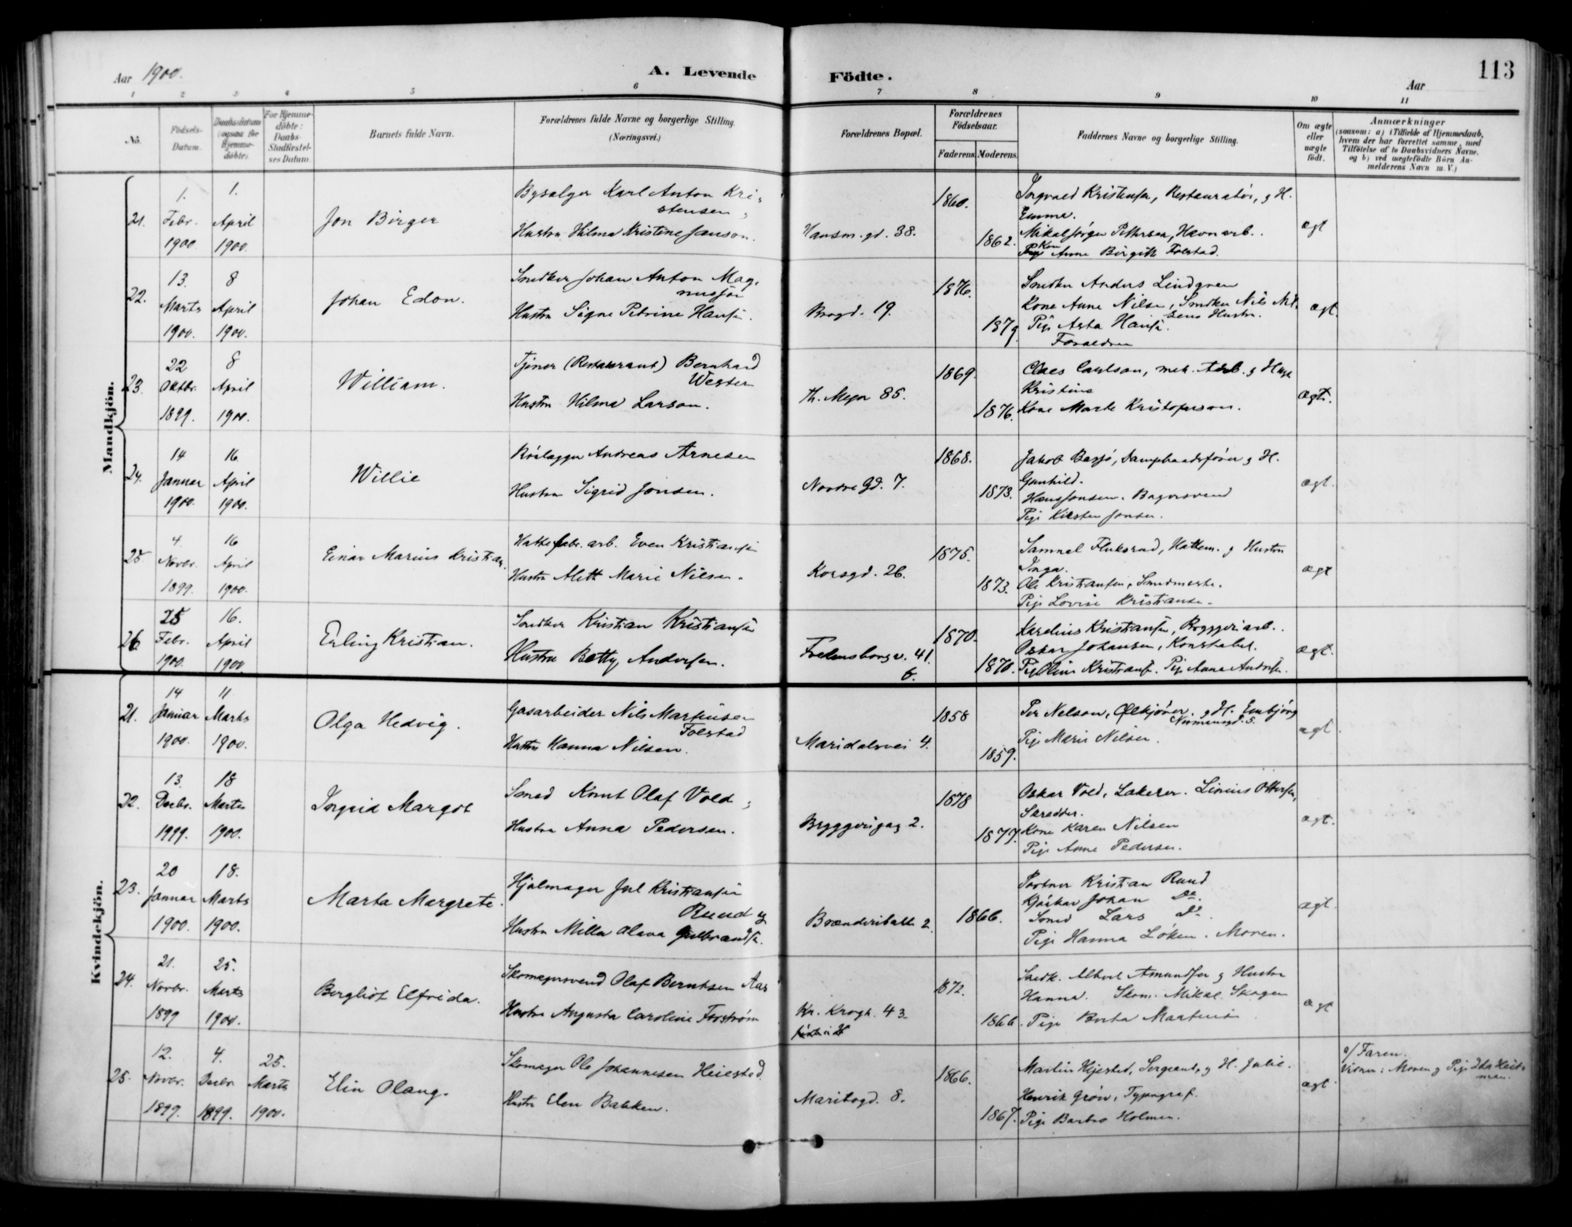 Aar 1900.
A. Levende Födte.
Aar
113
1 2 3 4 5 6 7 8 9 10 11
No.
Födsels-Datum.
Daabsdatum (ogsaa for Hjemme-döbte).
For Hjemme-döbte: Daabs-Stadfæstel-ses Datum.
Barnets fulde Navn.
Forældrenes fulde Navne og borgerlige Stilling.
(Næringsvei.)
Forældrenes Bopæl.
Forældrenes Födselsaar.
Faderens. Moderens.
Faddernes Navne og borgerlige Stilling.
Om ægte eller uægte födt.
Anmærkninger
(saasom: a) i Tilfælde af Hjemmedaab, hvem der har forrettet samme, med Tilföielse af to Daabsvidners Navne, og b) ved uægtefödte Börn Anmelderens Navn m. V.)
Mandkjön.
21. 1. Febr. 1900 1. April 1900.
Jon Birger
Bysælger Karl Anton Kristensen,
Hustru Hilma Kristine Janson.
Hausm. gd. 38.
1860. 1862.
Ingvald Kristensen, Restauratör, g H.
Emma.
Mikal Jörgen Pettersen, Havnarb.
Kone Anne Birgitte Folstad.
ægt
22. 13. Marts 1900. 8 April 1900.
Johan Edon.
Snedker Johan Anton Magnussen
Hustru Signe Petrine Hansen
Brogd. 19.
1876. 1879.
Snedker Anders Lindgren
Kone Anne Nilsen, Snedker Nils Nilsens Hustru.
Pige Asta Hansen.
Forældrene
ægt
23. 22 Oktbr. 1899. 8 April 1900.
William.
Tjener (Restaurant) Bernhard
Wester
Hustru Hilma Larson.
Th. Meyer 85.
1869. 1876.
Claes Carlson, mek. Arb. g H
Kristine
Kone Marte Kristoferson.
ægt.
24. 14 Januar 1900. 16 April 1900.
Willie
Rörlægger Andreas Arnesen
Hustru Sigrid Jonsen.
Nordre gd. 7.
1868. 1873.
Jakob Basjö, Dampbaadsförer g H.
Gunhild.
Hans Jonsen. Bagersvend
Pige Kirsten Jonsen.
ægt.
25 4. Novbr. 1899. 16 April 1900.
Einar Marius Kristian.
Hattefabr. arb. Even Kristiansen
Hustru Alett Marie Nilsen.
Korsgd. 26.
1875. 1873.
Samuel Fluksrud, Hattem. g Hustru
Inga.
Ole Kristiansen,
Pige Lovise Kristiansen.
ægt
26 25 Febr. 1900. 16. April 1900
Erling Kristian.
Snedker Kristian Kristiansen
Hustru Betty Andersen.
Fredensborgv. 41
b.
1870. 1870.
Karelius Kristiansen, Bryggeriarb.
Oskar Johansen, Konstabel.
Pige Oline Kristians. Pige Anna Anders.
ægt.
Kvindekjön.
21. 14 Januar 1900. 11 Marts 1900.
Olga Hedvig.
Gasarbeider Nils Martinsen
Folstad
Hustru Hanna Nilsen.
Maridalsvei 4.
1858 1859.
Per Nelson, Ölkjörer. g H. Embjörg
Normannsgd. 5.
Pige Marie Nilsen.
ægt.
22. 13. Decbr. 1999. 18 Marts 1900.
Ingrid Margot
Smed Knut Olaf Vold,
Hustru Anna Pedersen.
Bryggerigag 2.
1878 1877.
Oskar Vold, Lakerer. Linius Ottersen,
Skrædder.
Kone Karen Nilsen
Pige Anne Pedersen.
ægt.
23. 20 Januar 1900. 18. Marts 1900.
Marta Margrete.
Hjulmager Juel Kristiansen
Ruud g
Hustru Milla Olava Gulbrands.
Brænderibakk 2.
1866.
Gartner Kristian Ruud
Johan Do
Smed Lars Do
Pige Hanna Löken. Moren.
ægt
24. 21. Novbr. 1899 25. Marts 1900.
Bergliot Elfrida.
Skomagersvend Olaf Berntsen Aas
Hustru Augusta Caroline Forström
Kr. Kroghs. 43.
1872. 1866.
Snedk. Albert Amundsen g Hustru
Hanna. Skom. Mikal Skogen
Pige Berta Martinsen
ægt
25. 12. Novbr. 1899. 4. Decbr 1899. 25. Marts 1900.
Elin Olaug.
Skomager Ole Johannesen Heiestad
Hustru Elen Bakken.
Maritsgd. 8.
1866. 1867.
Martin Hjestad, Sergeant, g H. Julie.
Henrik Grön, Typograf.
Pige Barbro Holmen.
ægt
a/ Faren.
Vidner: Moren g Pige Ida